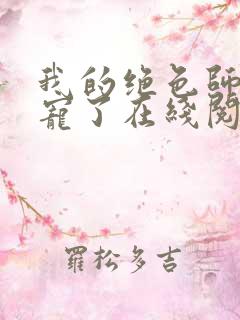 我的绝色师
寵了在綫閱
羅松多吉